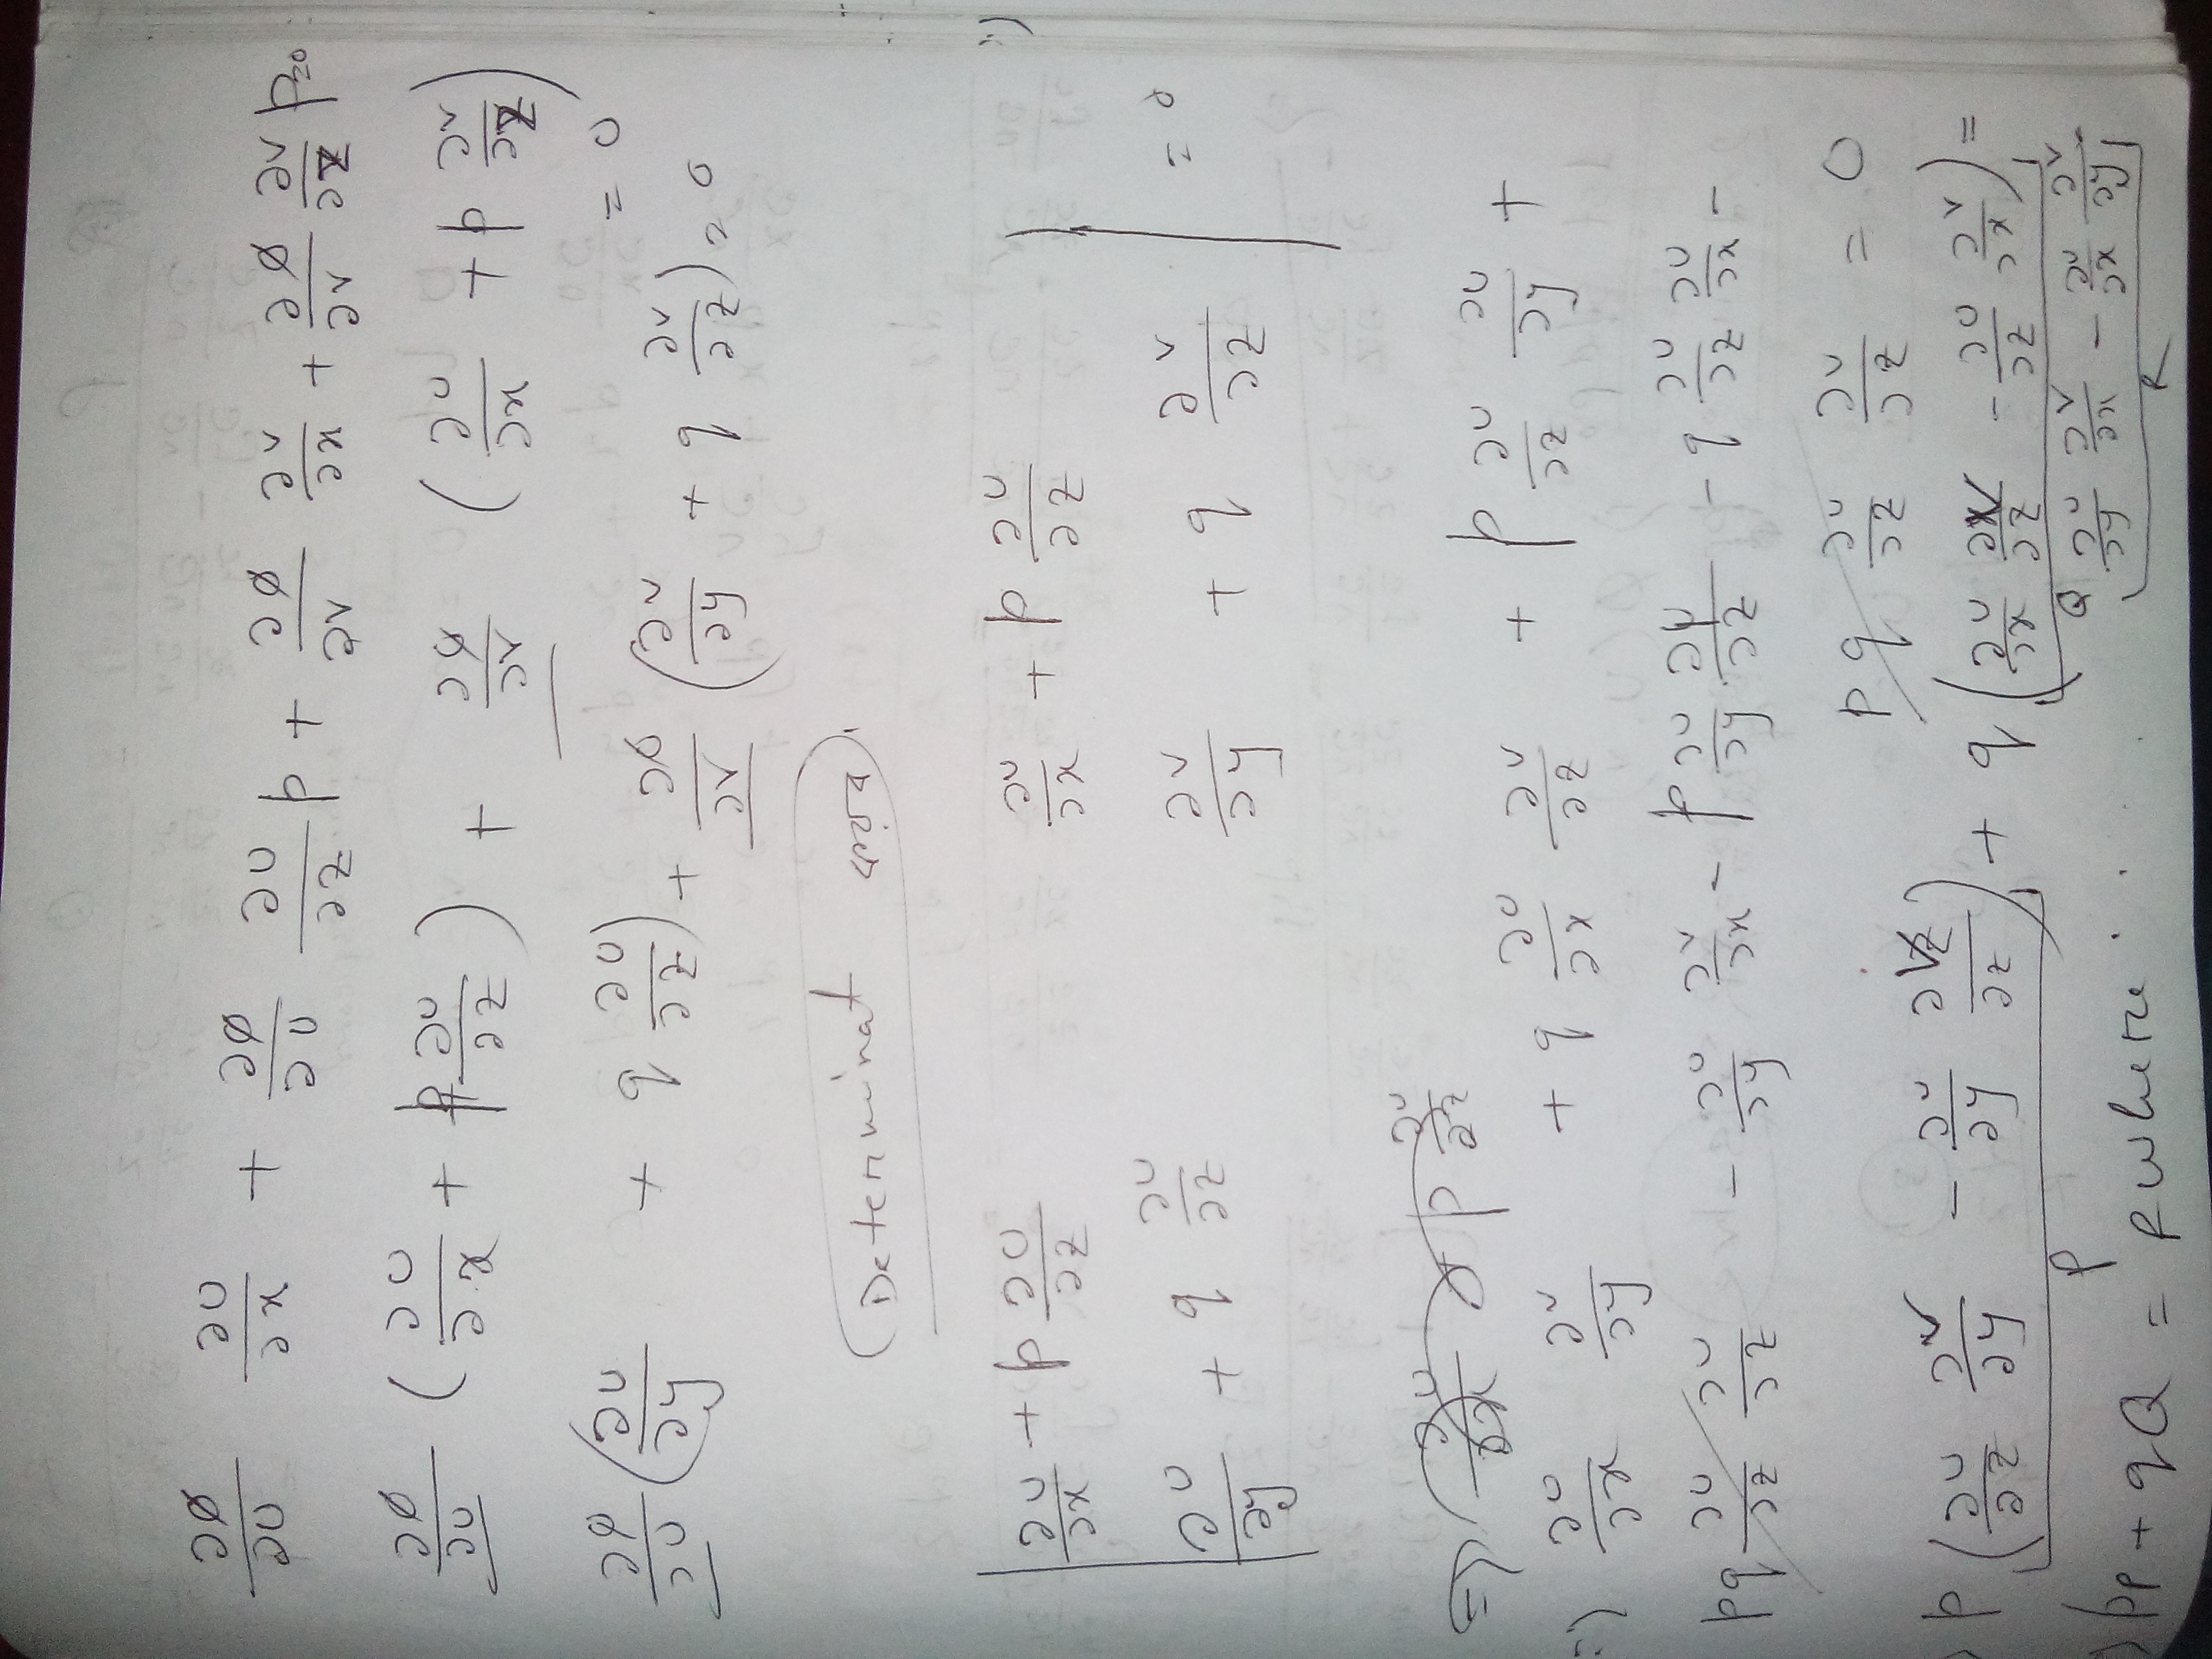 ∂φ/∂u ∂u/∂x + ∂φ/∂u ∂u/∂z p + ∂φ/∂v ∂v/∂x + ∂φ/∂v ∂v/∂z p = 0
∂φ/∂u (∂u/∂x + p ∂u/∂z) + ∂φ/∂v (∂v/∂x + p ∂v/∂z) = 0
∂φ/∂u (∂u/∂y + q ∂u/∂z) + ∂φ/∂v (∂v/∂y + q ∂v/∂z) = 0
(Determinat
| ∂u/∂x + p ∂u/∂z ∂v/∂x + p ∂v/∂z |
| ∂u/∂y + q ∂u/∂z ∂v/∂y + q ∂v/∂z | = 0
=)
∂u/∂x ∂v/∂y + q ∂u/∂x ∂v/∂z + p ∂u/∂z ∂v/∂y +
pq ∂u/∂z ∂v/∂z - ∂u/∂y ∂v/∂x - p ∂u/∂y ∂v/∂z - q ∂u/∂z ∂v/∂x -
pq ∂u/∂z ∂v/∂z = 0
p (∂u/∂z ∂v/∂y - ∂u/∂y ∂v/∂z) + q (∂u/∂x ∂v/∂z - ∂u/∂z ∂v/∂x) =
P Q
∂u/∂y ∂v/∂x - ∂u/∂x ∂v/∂y
R
pP + qQ = R where